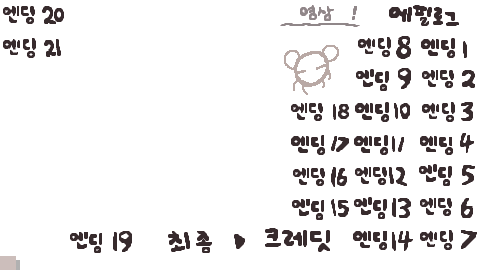 엔딩 20 염삼 ! 에필로그
엔딩 21 엔딩 8 엔딩 1
엔딩 9 엔딩 2
엔딩 18 엔딩 10 엔딩 3
엔딩 17 엔딩 11 엔딩 4
엔딩 16 엔딩 12 엔딩 5
엔딩 15 엔딩 13 엔딩 6
엔딩 19 최종 ▶ 크레딧 엔딩 14 엔딩 7